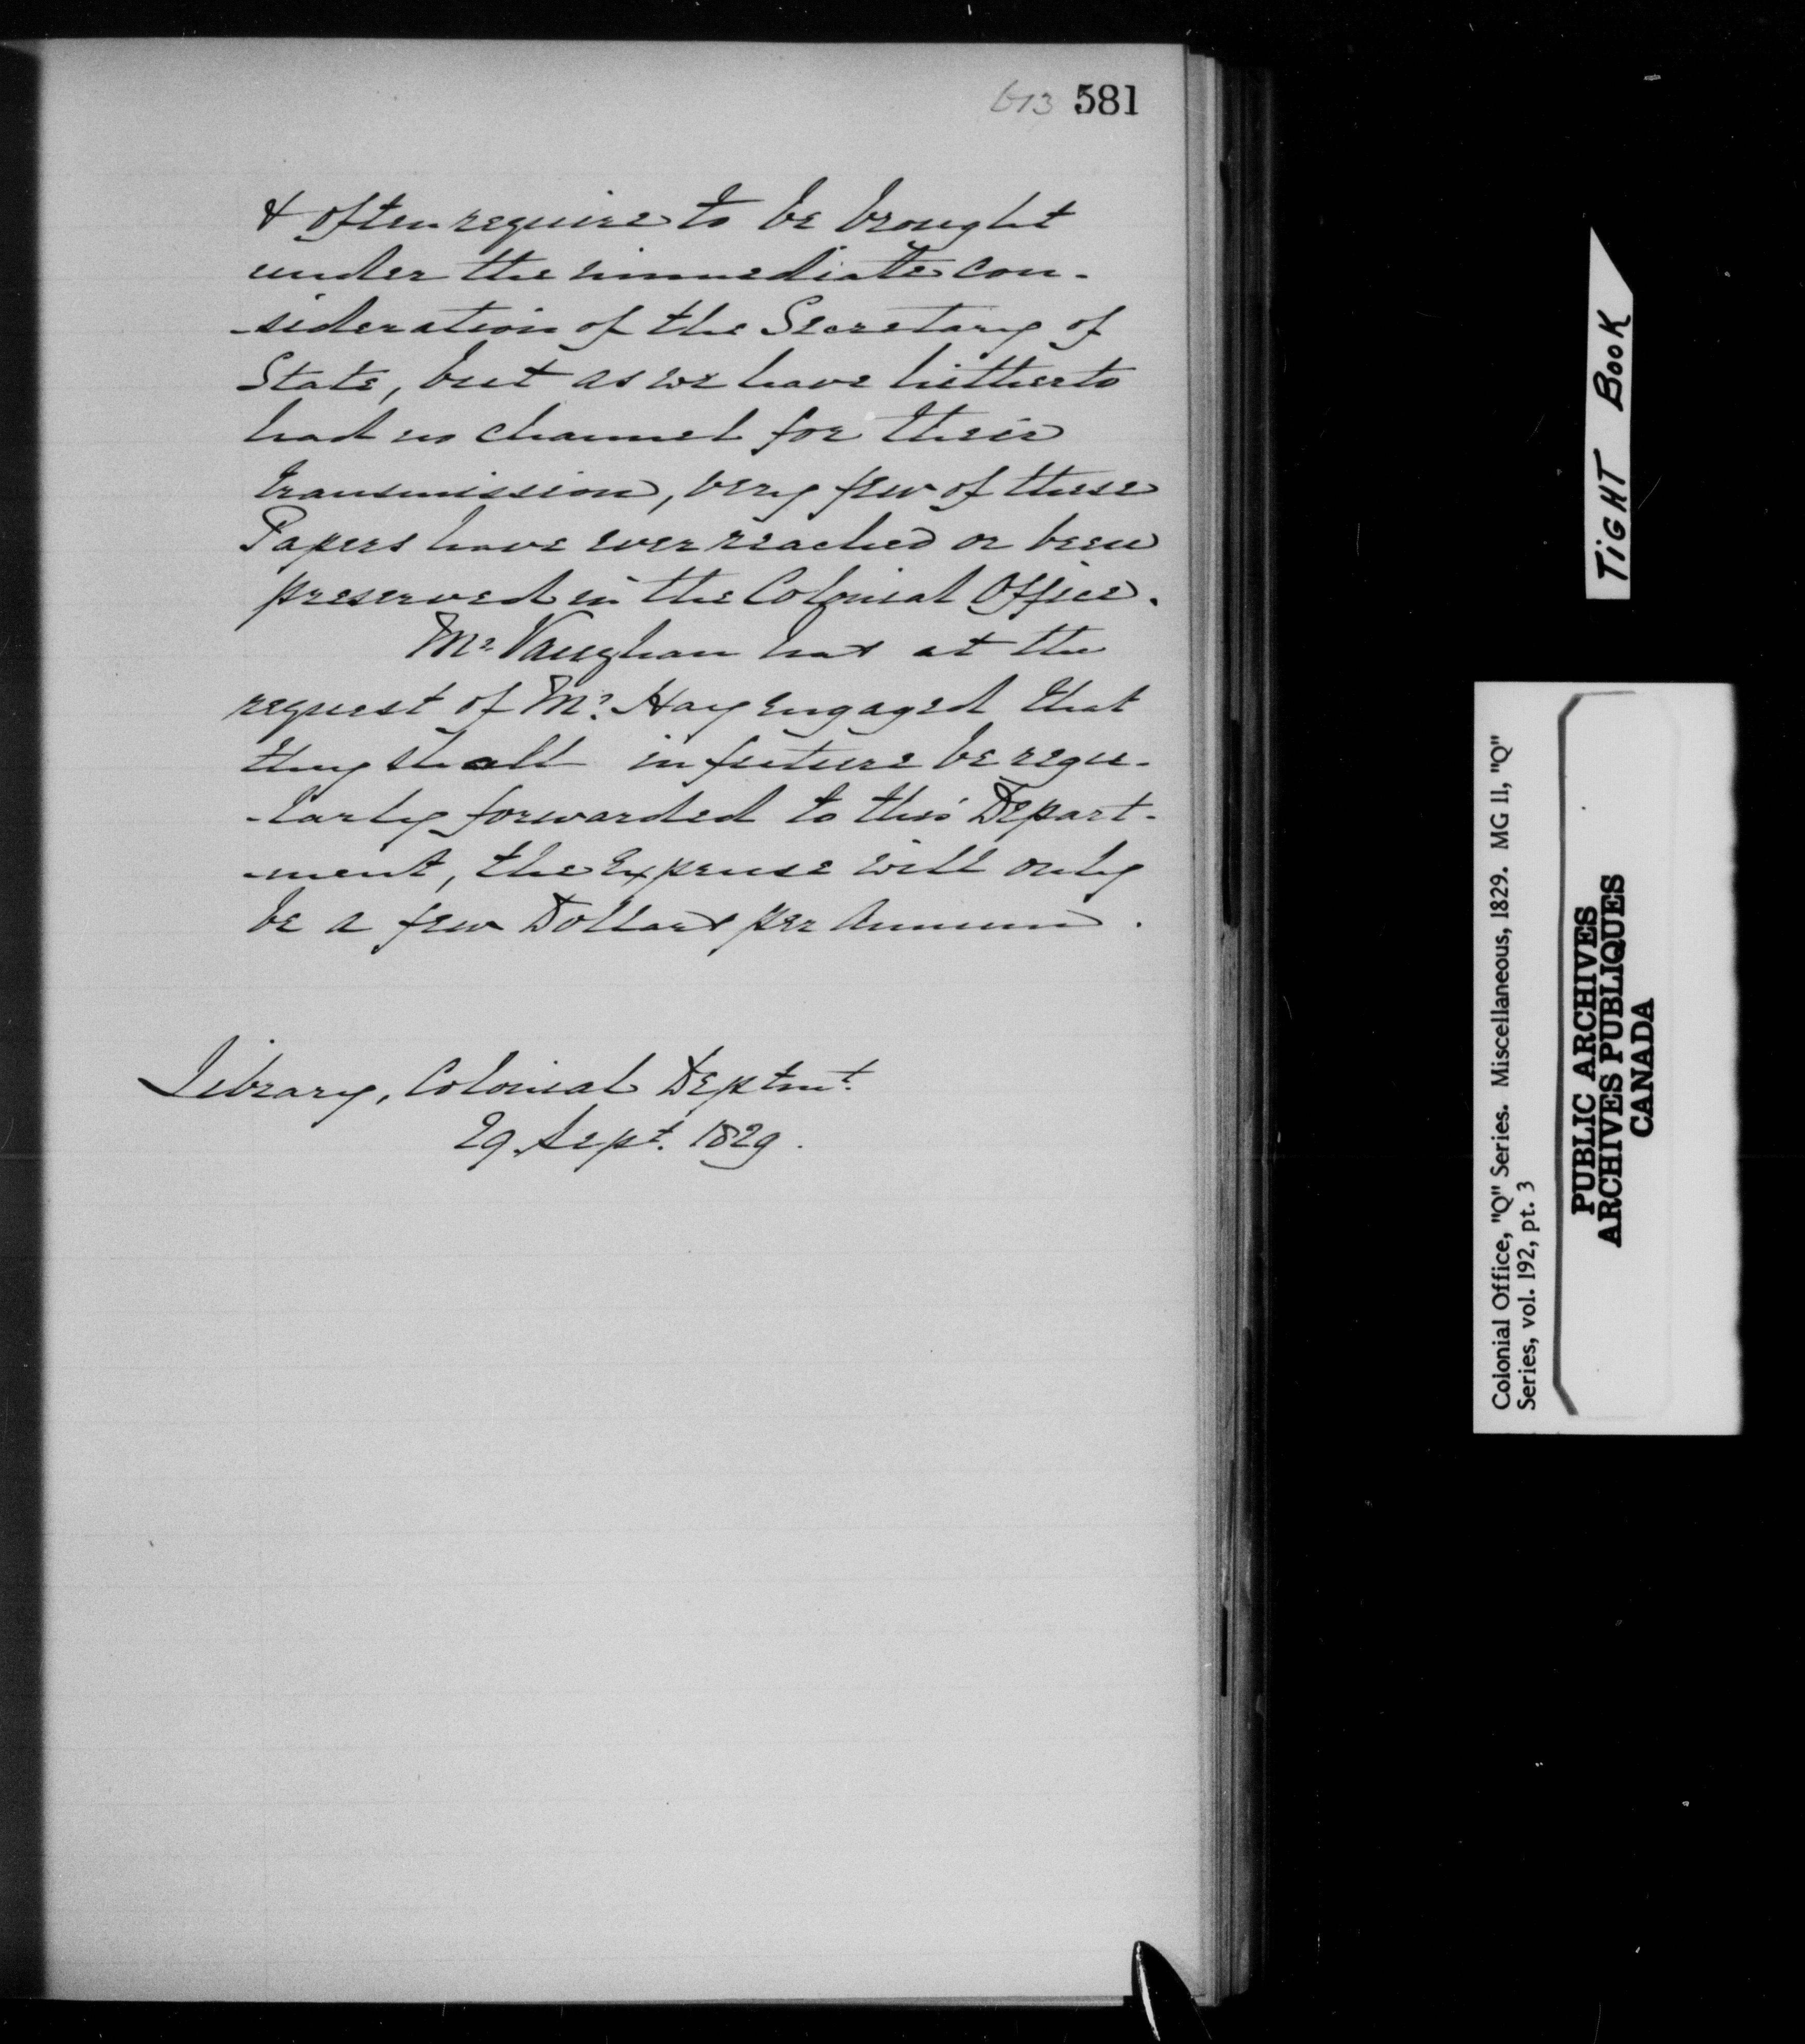 613 581
& often require to be brought
under the immediate con-
-sideration of the Secretary of
State, but as we have hitherto
had no channel for their
transmission, very few of these
Papers have ever reached or been
preserved in the Colonial Office.
Mr. Vaughan has at the
request of Mr. Hay engaged that
they shall in future be regu-
-larly forwarded to this Depart-
-ment, the Expense will only
be a few Dollars per Annum.
Library, Colonial Deptmt.
29. Sept. 1829.
TIGHT BOOK
Colonial Office, "Q" Series. Miscellaneous, 1829. MG 11, "Q"
Series, vol. 192, pt. 3
PUBLIC ARCHIVES
ARCHIVES PUBLIQUES
CANADA